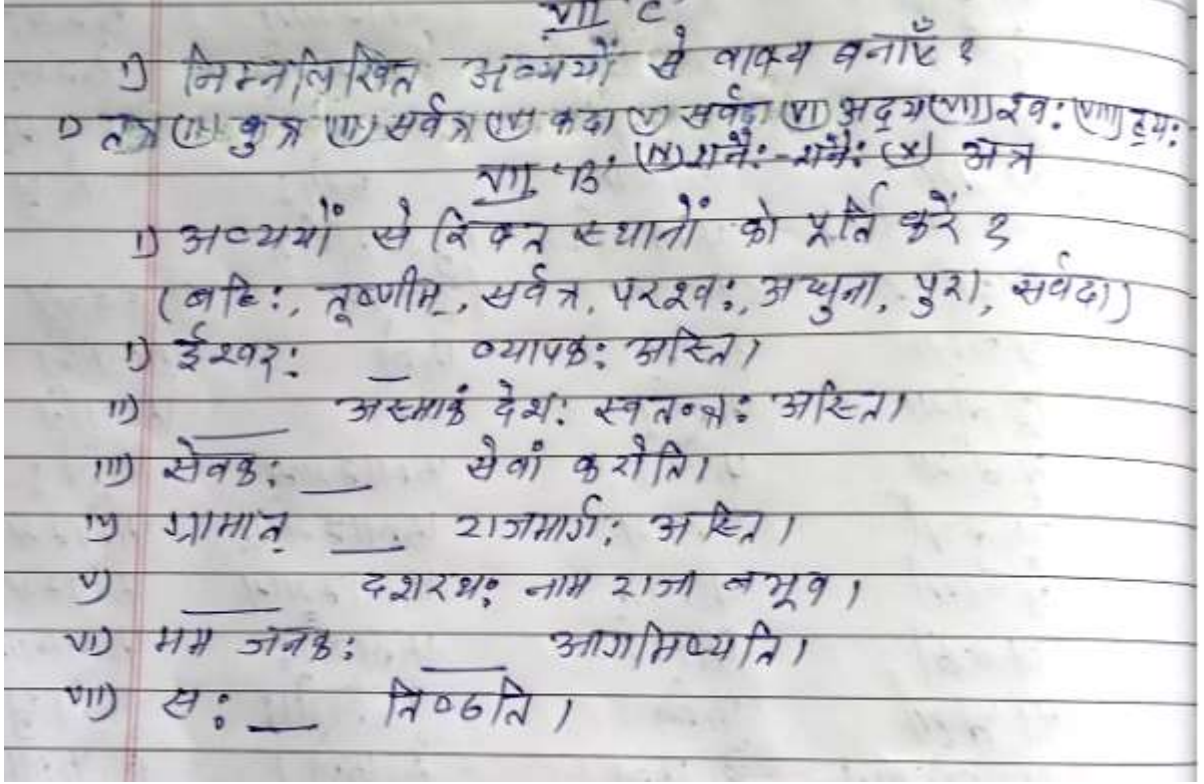 VII C
1) निम्नलिखित अव्ययों से वाक्य बनाएँ ?
1) तत्र (ii) कुत्र (iii) सर्वत्र (iv) कदा (v) सर्वदा (vi) अद्य (vii) श्वः (viii) ह्यः
(ix) शनैः-शनैः (x) अत्र
VII 'B'
1) अव्ययों से रिक्त स्थानों को पूर्ति करें ?
(बहिः, तूष्णीम्, सर्वत्र, परश्वः, अधुना, पुरा, सर्वदा)
i) ईश्वरः __ व्यापकः अस्ति।
ii) ____ अस्माकं देशः स्वतन्त्रः अस्ति।
iii) सेवकः ___ सेवां करोति।
iv) ग्रामात् ___ राजमार्गः अस्ति।
v) ____ दशरथः नाम राजा बभूव।
vi) मम जनकः ____ आगमिष्यति।
vii) सः ___ तिष्ठति।